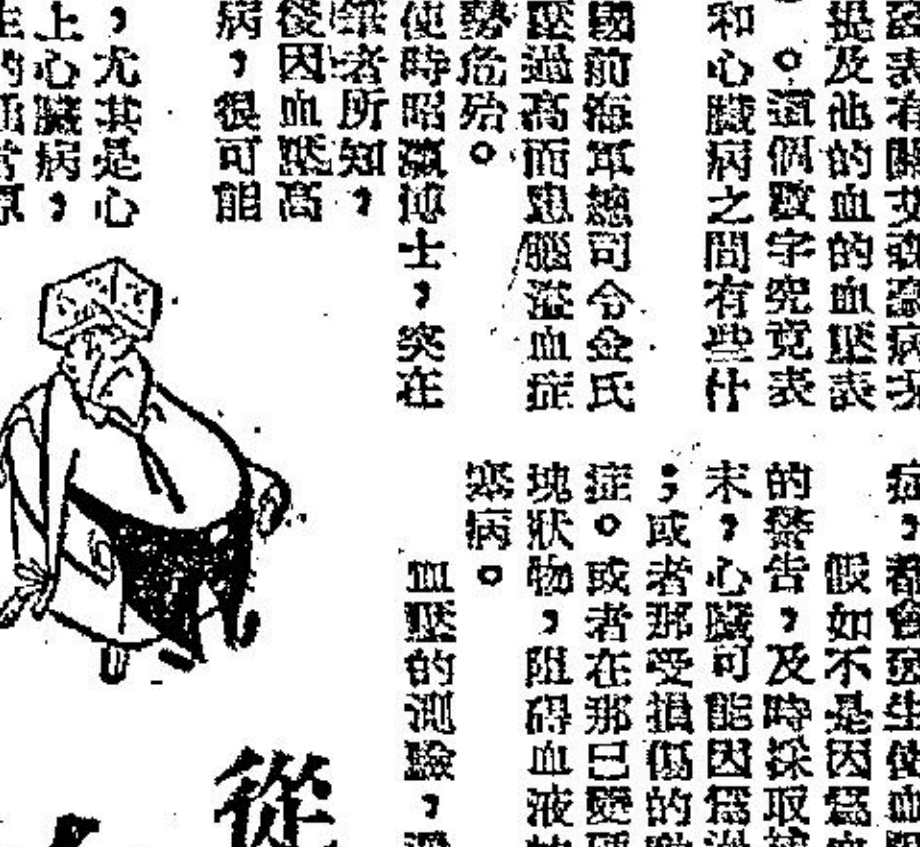 提及他的血的血壓表
。這個數字究竟表
和心臟病之間有些什
國前海軍總司令金氏
壓過高而患腦溢血症
勢危殆。
使時昭瀛博士，突在
筆者所知，
後因血壓高
病，很可能
，尤其是心
上心臟病，
假如不是因為
的警告，及時採取
末，心臟可能因為過
；或者那受損傷的
症。或者在那已變硬
塊狀物，阻碍血液
塞病。
血壓的測驗，
從